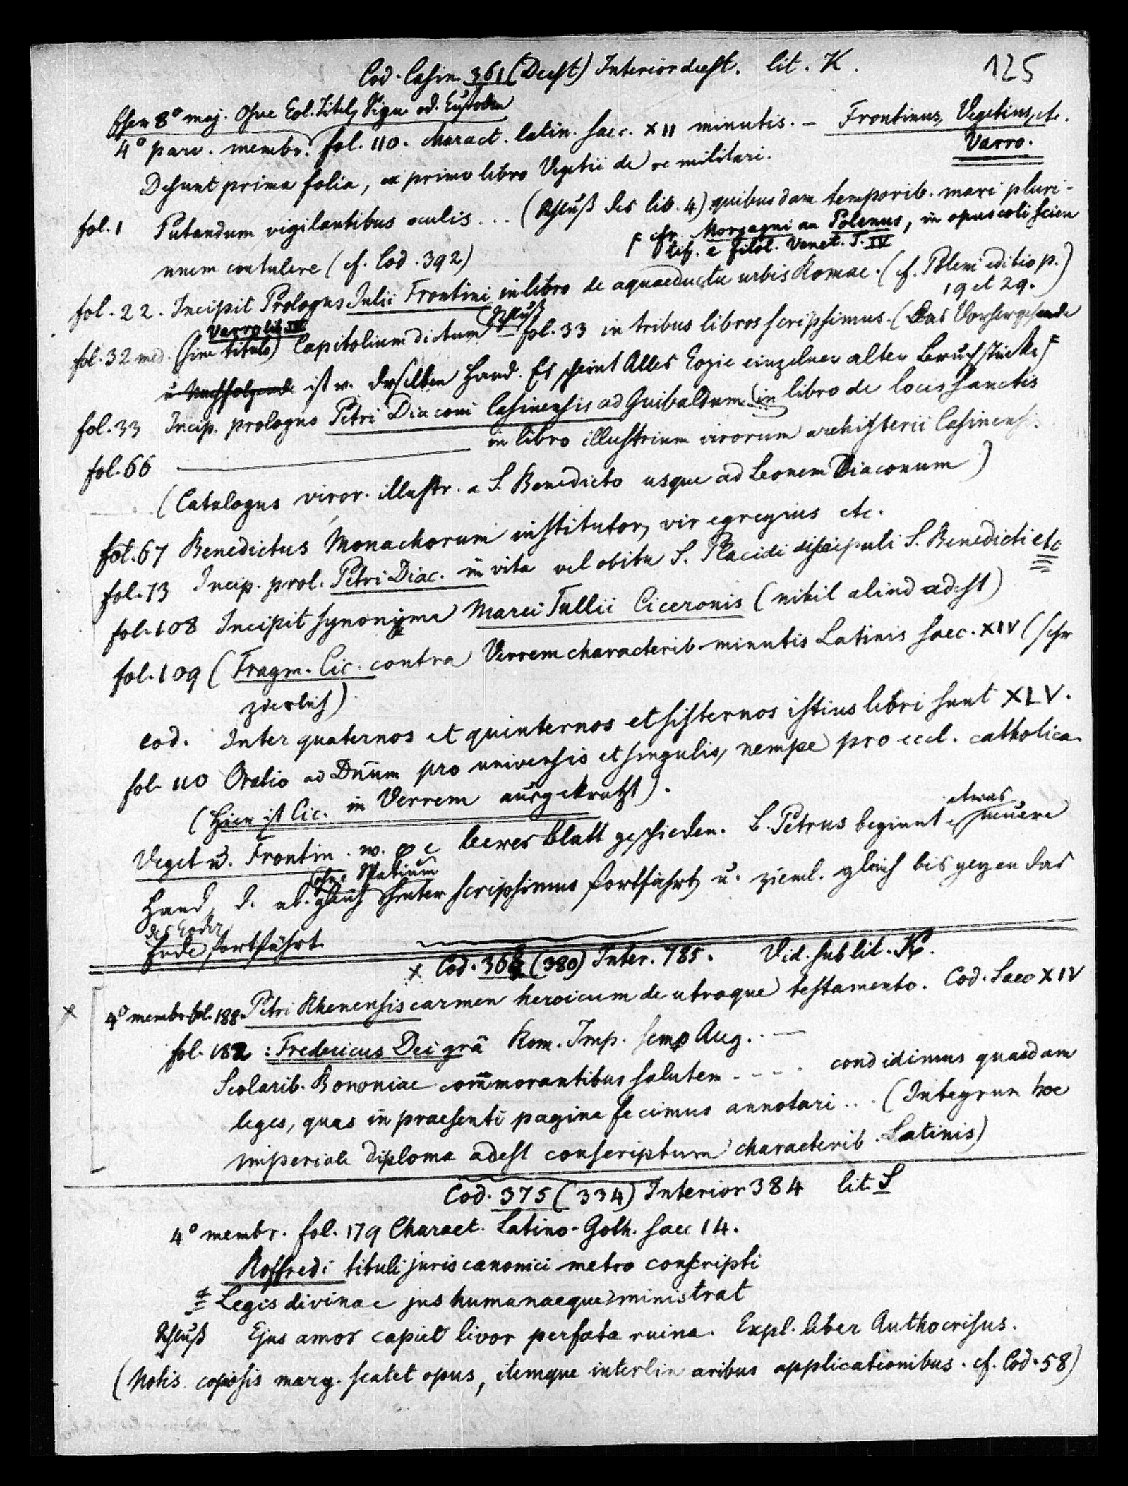 Cod. Casin. 361 (Deest) Interior deest. lit. K.
125
8° maj. ohne Col. Titel, Sign. od. Custoden
4° parv. membr. fol. 110. charact. latin. saec. XII minutis. — Frontinus, Vegetius, etc.
Varro.
Desunt prima folia, ex primo libro Vegetii de re militari.
fol. 1 Putandum vigilantibus oculis ... (Schluß des lib. 4) quibusdam temporib. mari pluri-
mum contulere (cf. Cod. 392)
cfr. Morgagni an Polenus, in opuscoli scien
tif. e filol. Venet. T. IV
fol. 22. Incipit Prologus Iulii Frontini in libro de aquaeductu urbis Romae. (cf. Poleni editio p.
19 et 29.)
Varro lib IV
fol. 32 med. (sine titulo) Capitolium dictum (Schluß fol. 33 in tribus libros scripsimus. (Das Vorhergehende
u Nachfolgende ist v. derselben Hand. Es scheint Alles Copie einzelner alter Bruchstücke)
fol. 33 Incip. prologus Petri Diaconi Casinensis ad Guibaldum in libro de locis sanctis
fol. 66 in libro illustrium virorum archisterii Casinensis.
(Catalogus viror. illustr. a S. Benedicto usque ad Leonem Diaconum)
fol. 67 Benedictus, Monachorum institutor, vir egregius etc.
fol. 73 Incip. prol. Petri Diac. in vita vel obitu S. Placidi discipuli S. Benedicti etc
fol. 108 Incipit synonyma Marci Tullii Ciceronis (nihil aliud adest)
fol. 109 (Fragm. Cic. contra Verrem characterib. minutis Latinis saec. XIV (sehr
zierlich)
eod. Inter quaternos et quinternos et sisternos istius libri sunt XLV.
fol. 110 Oratio ad Dnum pro universis et singulis, nempe pro eccl. catholica
(Hier ist Cic. in Verrem ausgekratzt).
Veget u. Frontin. leeres blatt geschieden. L. Petrus beginnt etwas neuere
Hand, d. ohne Spatium gleich hinter scripsimus fortfährt u. zieml. gleich bis gegen das
Ende des Codex fortführt.
x Cod. 364 (380) Inter. 785. Vid. sub lit. K.
x 4° membr. fol. 188. Petri Rhenensis carmen heroicum de utroque testamento. Cod. Saec XIV
fol. 182 : Fredericus Dei grā Rom. Imp. semp Aug. —
Scolarib. Bononiae com̄morantibus salutem - - - . condidimus quasdam
leges, quas in praesenti pagina fecimus annotari ... (Integrum hoc
imperiale diploma adest conscriptum characterib. Latinis)
Cod. 375 (334) Interior 384 lit S
4° membr. fol. 179 Charact. Latino-Goth. saec 14.
Roffredi tituli juris canonici metro conscripti
Legis divinae jus humanaeque ministrat
Schluß Ejus amor capiet livor perfata ruina. Expl. liber Authocrisus.
(Notis copiosis marg. scatet opus, itemque interlinearibus applicationibus. cf. Cod. 58)